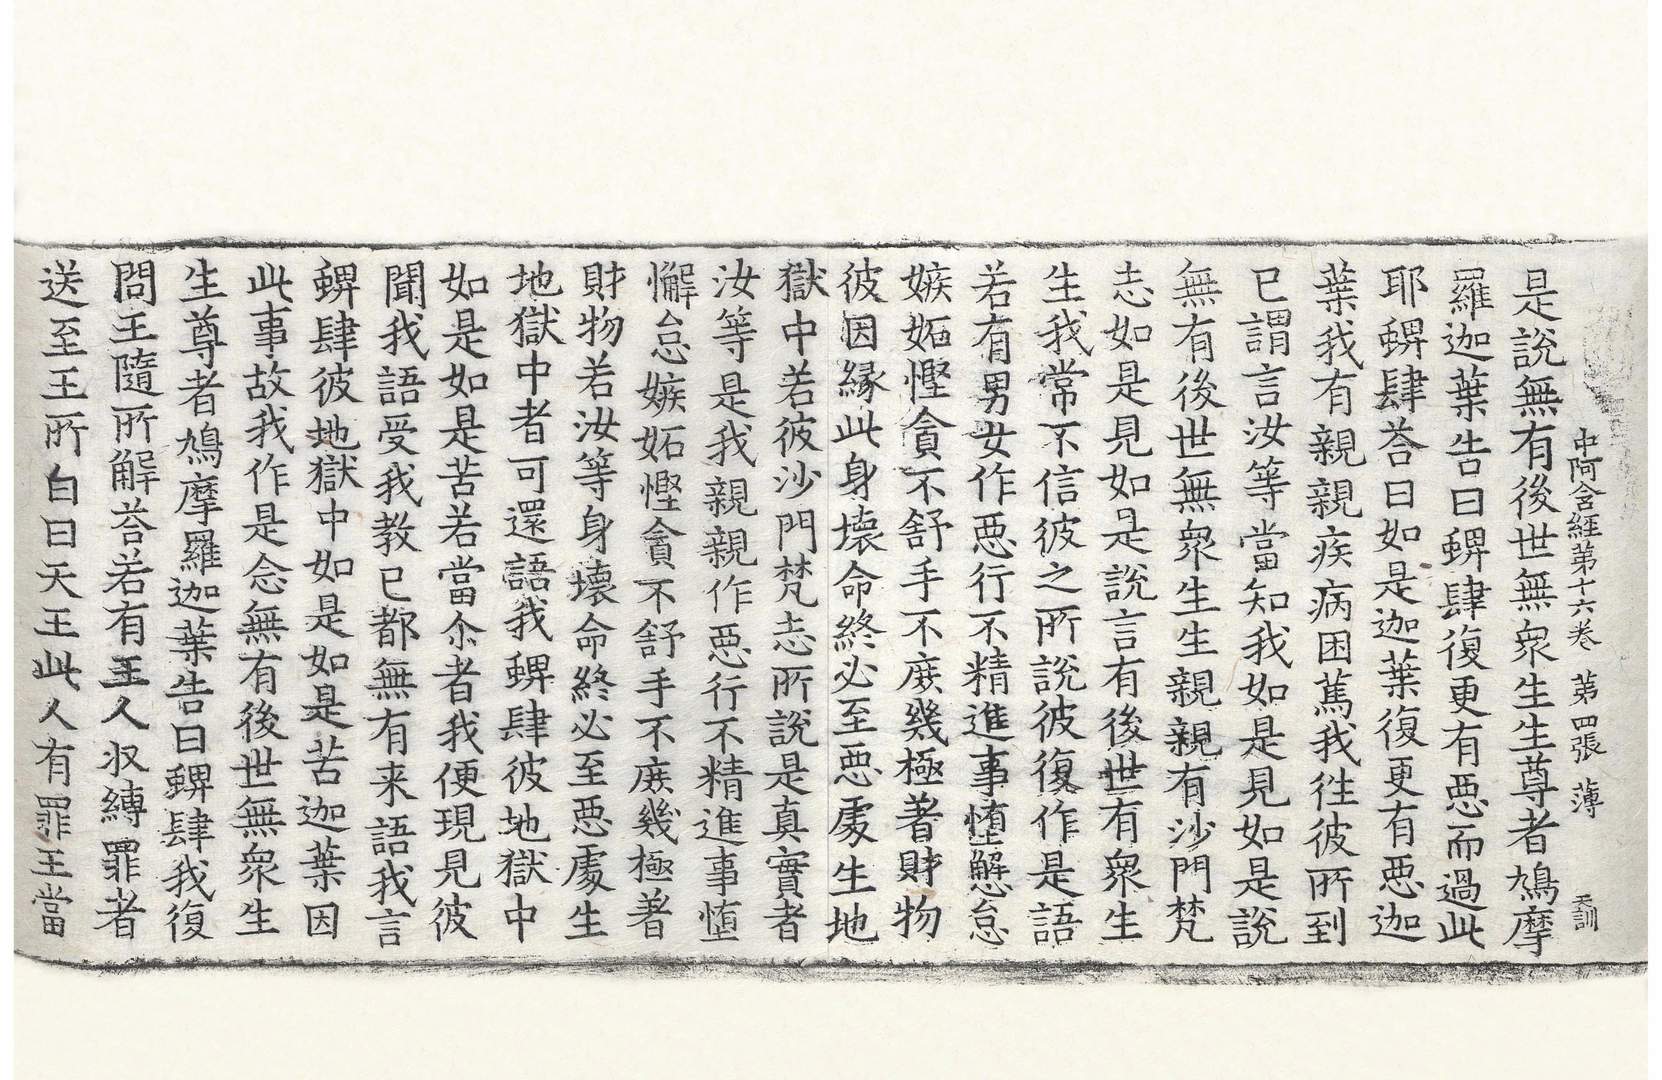 中阿含經第十六卷 第四張 薄 天訓
是說無有後世無衆生生尊者鳩摩
羅迦葉告曰蜱肆復更有惡而過此
耶蜱肆荅曰如是迦葉復更有惡迦
葉我有親親疾病困篤我往彼所到
已謂言汝等當知我如是見如是說
無有後世無衆生生親親有沙門梵
志如是見如是說言有後世有衆生
生我常不信彼之所說彼復作是語
若有男女作惡行不精進事墮懈怠
嫉妬慳貪不舒手不庶幾極著財物
彼因緣此身壞命終必至惡處生地
獄中若彼沙門梵志所說是真實者
汝等是我親親作惡行不精進事墮
懈怠嫉妬慳貪不舒手不庶幾極著
財物若汝等身壞命終必至惡處生
地獄中者可還語我蜱肆彼地獄中
如是如是苦若當尒者我便現見彼
聞我語受我教已都無有来語我言
蜱肆彼地獄中如是如是苦迦葉因
此事故我作是念無有後世無衆生
生尊者鳩摩羅迦葉告曰蜱肆我復
問王隨所解荅若有王人収縛罪者
送至王所白曰天王此人有罪王當